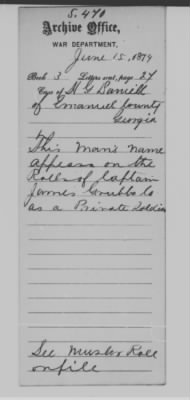 S. 470
Archive Office,
WAR DEPARTMENT,
June 15, 1879
Book 3 Letters sent, page 27
Case of N. G. Daniell
of Emanuel County
Georgia
This Man's name
appears on the
Rolls of Captain
James Grubbs Co
as a Private Soldier
See Muster Roll
on file